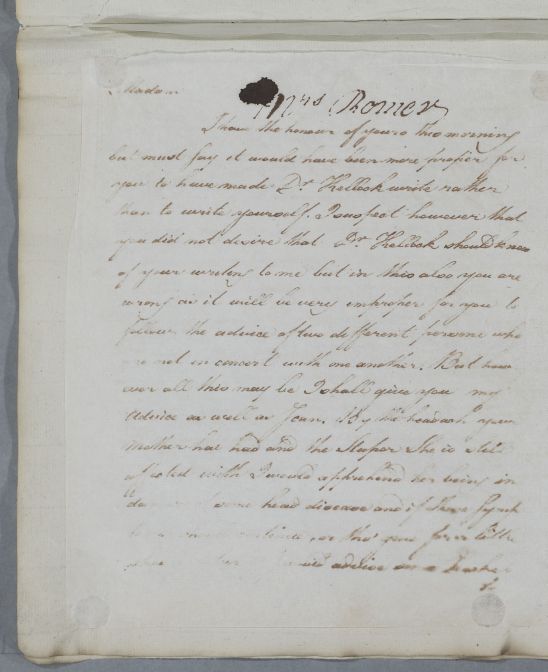 Madam
Mrs Romer
I have the honour of yours this morning
but must say it would have been more proper for
you to have made Dr Kellock write rather
than to write yourself. I suspect however that
you did not desire that Dr Kellock should know
of your writing to me but in this also you are
wrong as it will be very improper for you to
follow the advice of two different persons who
are not in concert with one another. But how
ever all this may be I shall give you my
Advice as well as I can. By the headach your
Mother has had and the Stupor She is still
affected with I would apprehend her being in
danger of some head disease and if these
or this you
advice